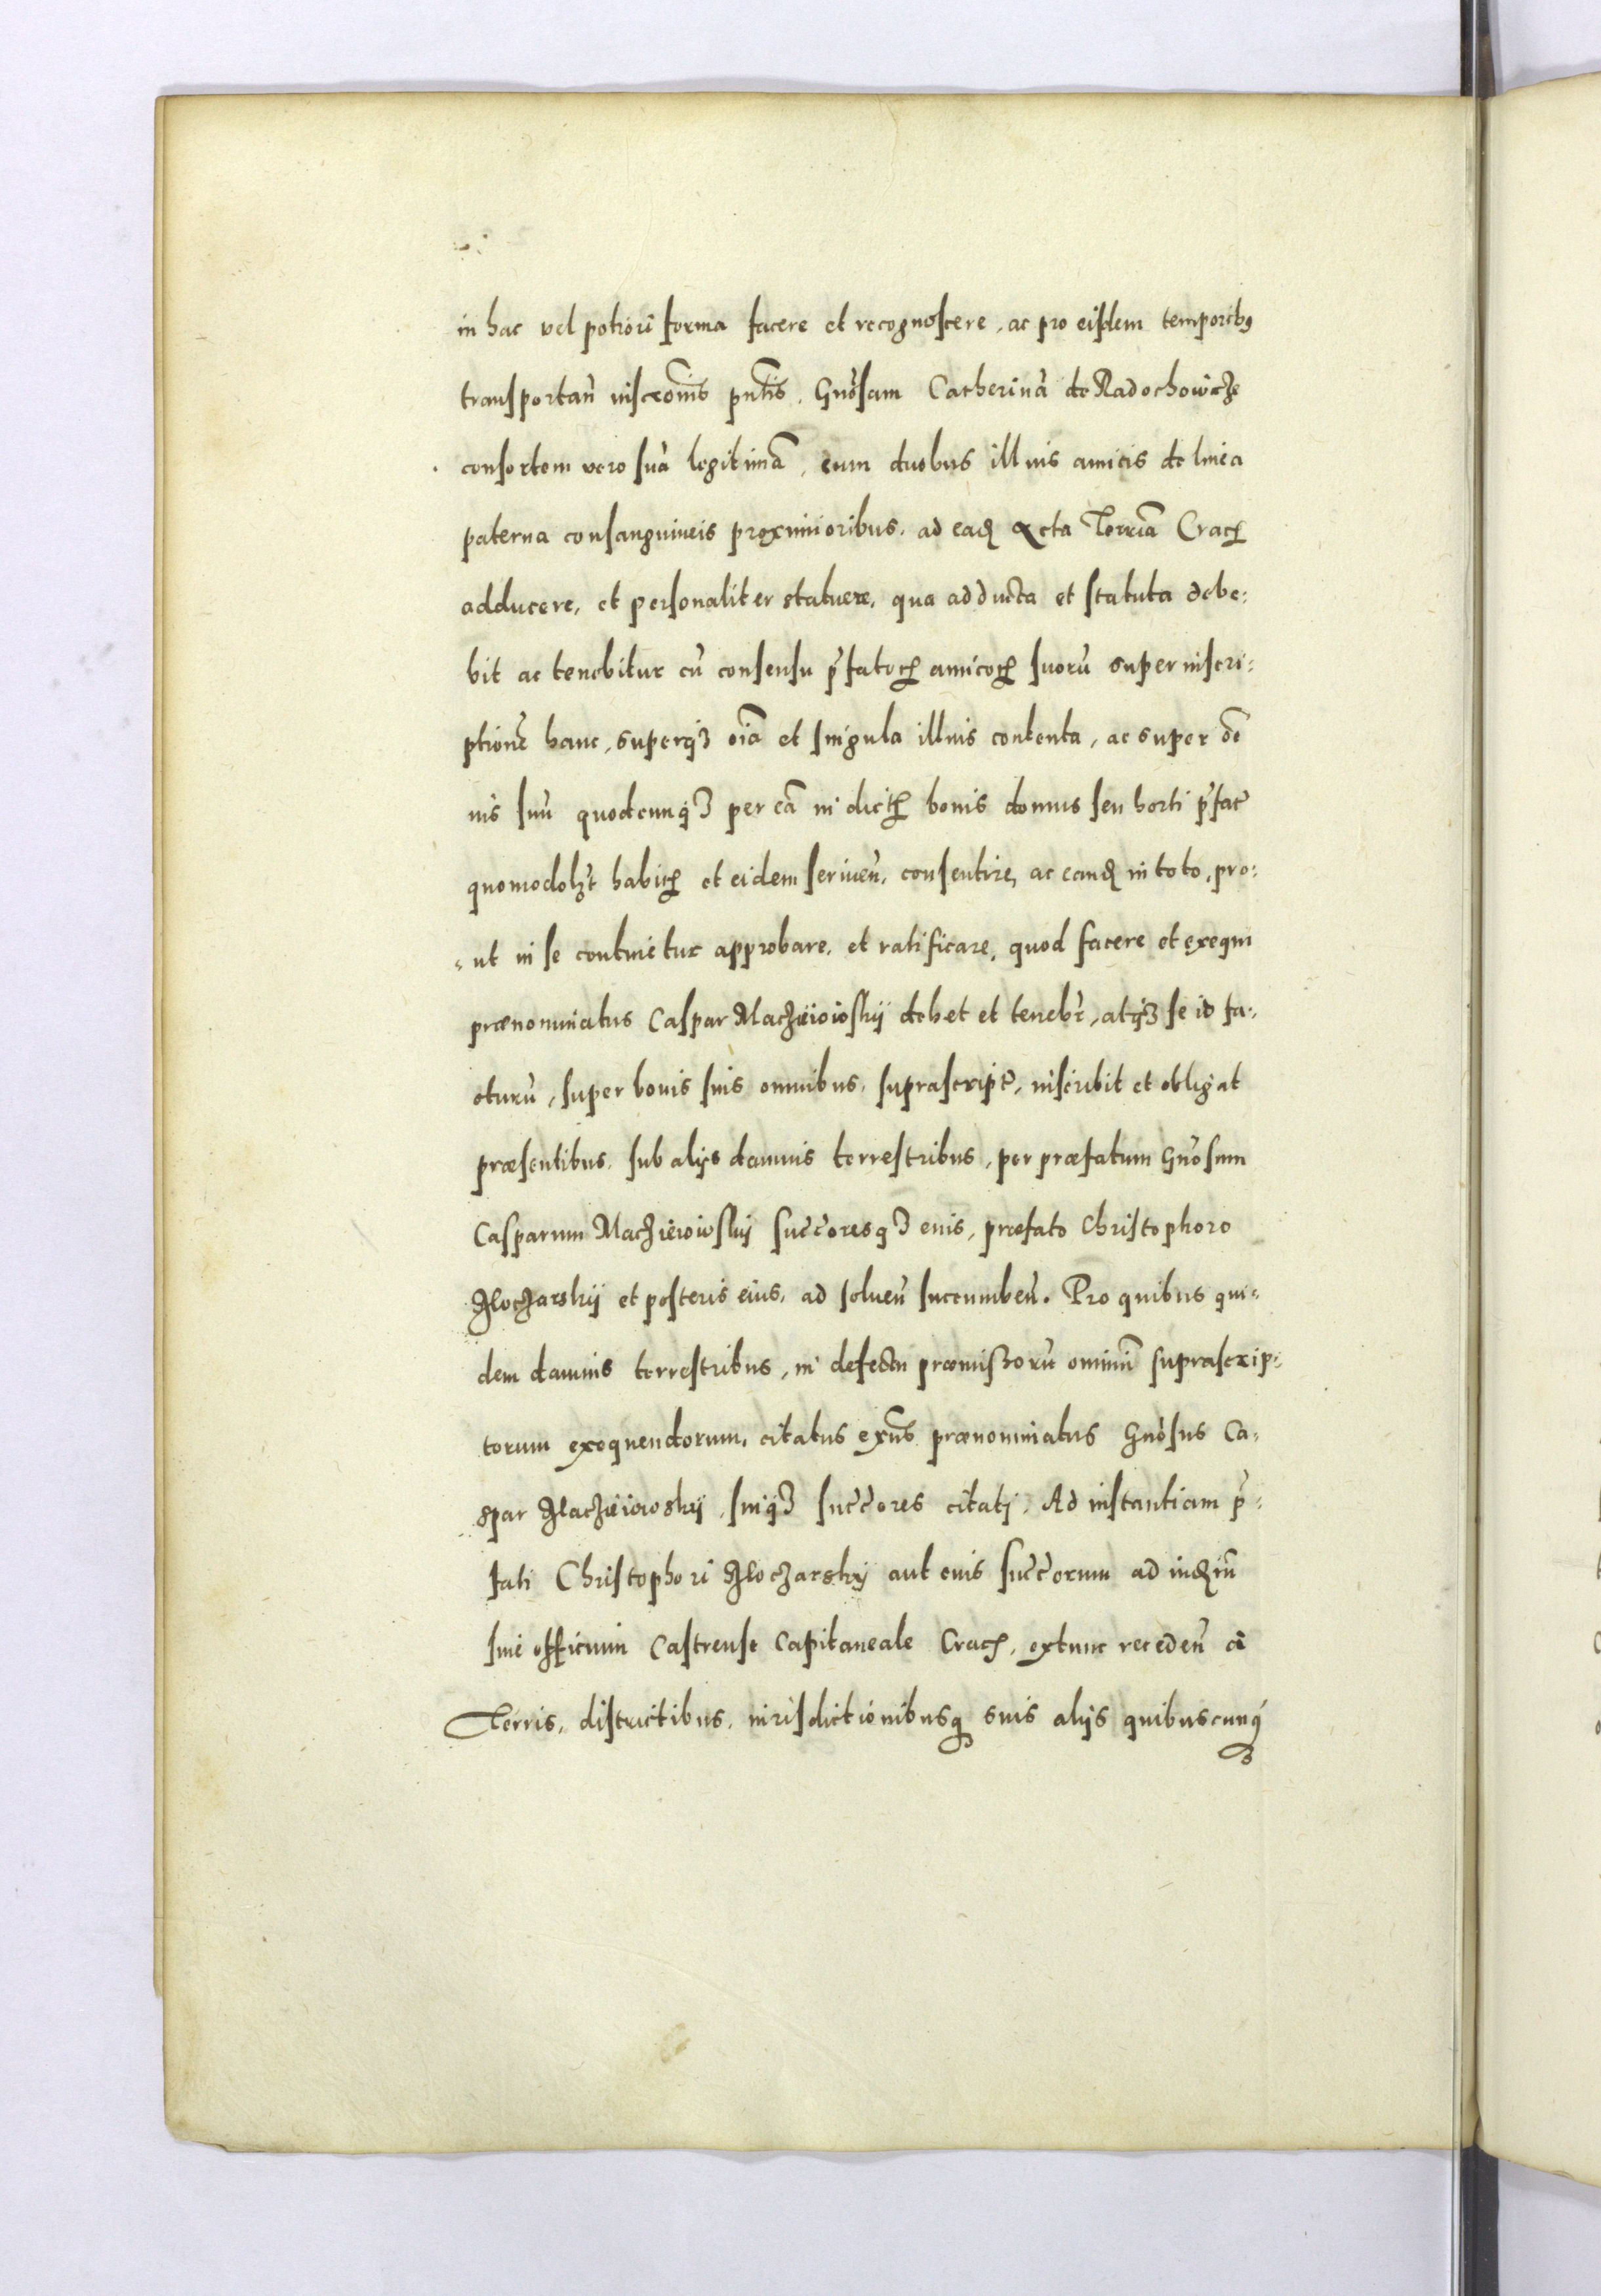 in hac vel potiori forma facere et recognoscere, ac pro eisdem temporibꝯ
transportatū inscrōnis pn̄tis, Gn̄osam Catherinā de Radochowicze
consortem vero suā legitimā, cum duobus illius amicis de linea
paterna consanguineis proximioribus, ad eaḍ Acta Terr̄ia Cracꝭ
adducere, et personaliter statuere, qua adducta et statuta debe:
bit ac tenebitur cū consensu p̄fatoꝝ amicoꝝ suorū super inscri:
ptionē hanc, superqꝫ oīa et singula illius contenta, ac super oē
ius suū quodcunqꝫ per eā in dictꝭ bonis domus seu horti p̄fat̄
quomodolꝫt habitꝭ et eidem serviен̄, consentire, ac eanḍ in toto, pro:
ut in se continetur approbare, et ratificare, quod facere et exequi
prænominatus Caspar Maczieiowskÿ debet et tenebr̄, atqꝫ se id fa:
cturū, super bonis suis omnibus, suprascript̄, inscribit et obligat
præsentibus, sub alÿs damnis terrestribus, per præfatum Gn̄osum
Casparum Maczieiowskÿ succ̄oresqꝫ eius, præfato Christophoro
Mloczarskÿ et posteris eius, ad soluen̄ succumben̄. Pro quibus qui:
dem damnis terrestribus, in defectu præmissorū omniū suprascrip:
torum exequendorum, citatus exn̄s prænominatus Gn̄osus Ca:
spar Maczieiowskÿ, suiqꝫ succ̄ores citati, Ad instantiam p̄:
fati Christophori Mloczarskÿ aut eius succ̄orum ad iudꝭiū
siue officium Castrense Capitaneale Cracꝭ, extunc receden̄ à
Terris, districtibus, iurisdictionibusqꝫ suis alÿs quibuscunqꝫ